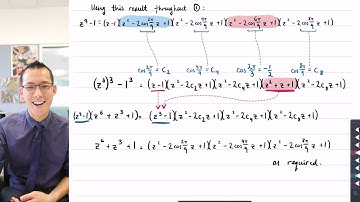 Using this result throughout ①:
z⁹-1 = (z-1)(z²-2cos 2π/9 z+1)(z²-2cos 4π/9 z+1)(z²-2cos 6π/9 z+1)(z²-2cos 8π/9 z+1)
cos 2π/9 = C₂ cos 4π/9 = C₄ cos 2π/3 = -1/2 cos 8π/9 = C₈
(z³)³-1³ = (z-1)(z²-2c₂z+1)(z²-2c₄z+1)(z²+z+1)(z²-2c₈z+1)
(z³-1)(z⁶+z³+1) = (z³-1)(z²-2c₂z+1)(z²-2c₄z+1)(z²-2c₈z+1)
z⁶+z³+1 = (z²-2cos 2π/9 z+1)(z²-2cos 4π/9 z+1)(z²-2cos 8π/9 z+1)
as required.